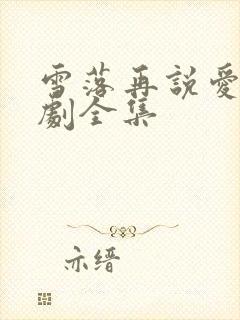 雪落再説愛
劇全集
亦缙